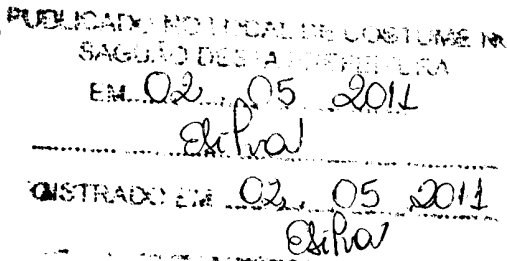 PUBLICADO NO LOCAL DE COSTUME NR
SAGUÃO DESTA PREFEITURA
EM 02 05 2011
ESilva
GISTRADO EM 02 05 2011
ESilva